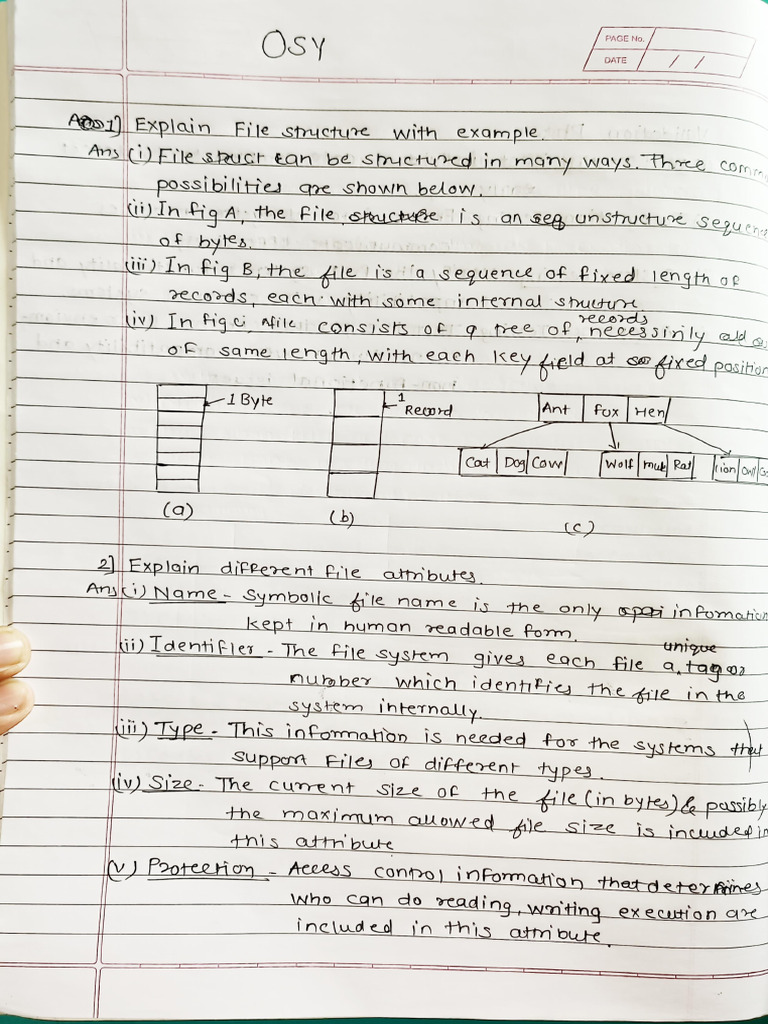 OSY
PAGE No.
DATE / /
1] Explain File structure with example.
Ans (i) File can be structured in many ways. Three comm
possibilities are shown below.
(ii) In fig A, the file is an unstructure sequenc
of bytes.
(iii) In fig B, the file is a sequence of fixed length of
records, each with some internal structure
records
(iv) In fig c, file consists of a tree of, necessirily
of same length, with each key field at fixed position
1 Byte
1 Record
Ant Fox Hen
Cat Dog Cow Wolf Rat lion Owl
(a) (b) (c)
2] Explain different file attributes.
Ans (i) Name - Symbolic file name is the only information
kept in human readable form.
unique
(ii) Identifier - The file system gives each file a, tag or
number which identifies the file in the
system internally.
(iii) Type - This information is needed for the systems that
support files of different types.
(iv) Size - The current size of the file (in bytes) & possibly
the maximum allowed file size is included in
this attribute
(v) Protection - Access control information that determines
who can do reading, writing execution are
included in this attribute.